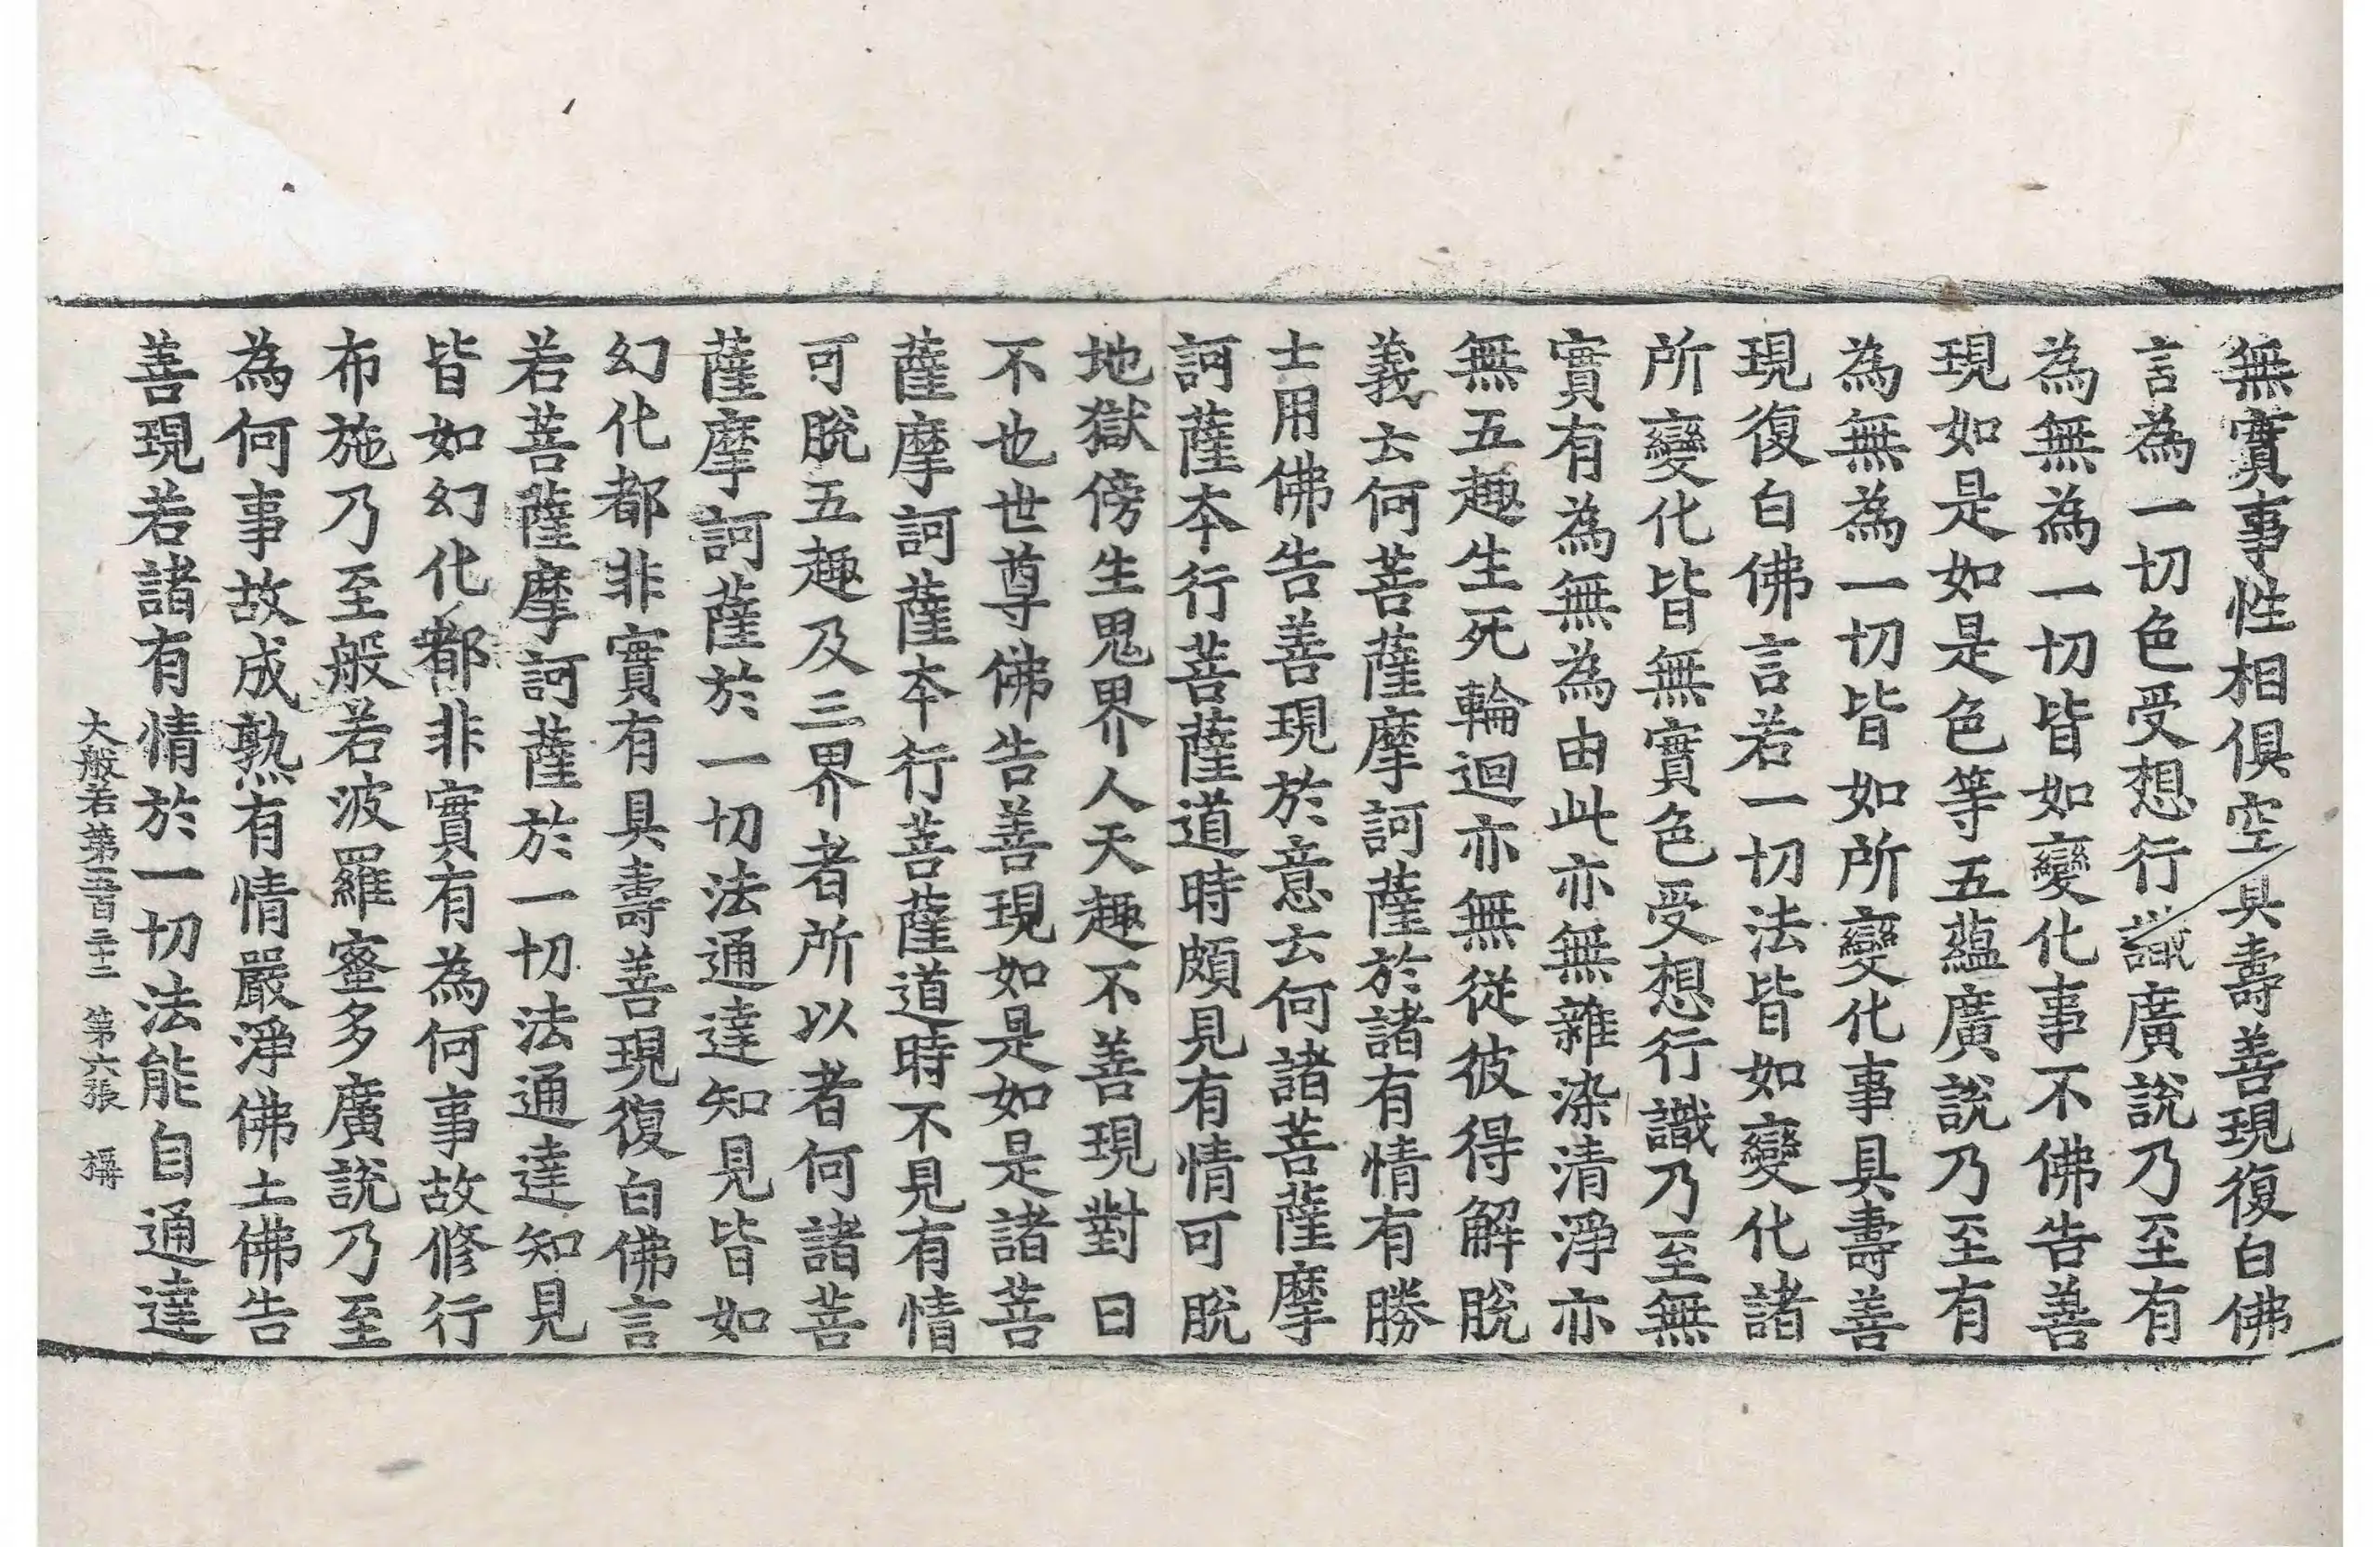 無實事性相俱空具壽善現復白佛
言為一切色受想行識廣說乃至有
為無為一切皆如變化事不佛告善
現如是如是色等五蘊廣說乃至有
為無為一切皆如所變化事具壽善
現復白佛言若一切法皆如變化諸
所變化皆無實色受想行識乃至無
實有為無為由此亦無雜染清淨亦
無五趣生死輪迴亦無從彼得解脫
義去何菩薩摩訶薩於諸有情有勝
士用佛告善現於意去何諸菩薩摩
訶薩夲行菩薩道時頗見有情可脫
地獄傍生鬼界人天趣不善現對曰
不也世尊佛告善現如是如是諸菩
薩摩訶薩夲行菩薩道時不見有情
可脫五趣及三界者所以者何諸菩
薩摩訶薩於一切法通達知見皆如
幻化都非實有具壽善現復白佛言
若菩薩摩訶薩於一切法通達知見
皆如幻化都非實有為何事故修行
布施乃至般若波羅蜜多廣說乃至
為何事故成熟有情嚴淨佛土佛告
善現若諸有情於一切法能自通達
大般若第五百二十二 第六張